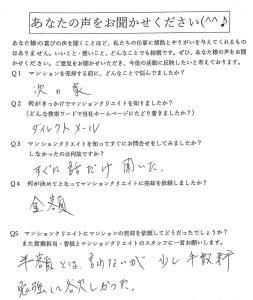 あなたの声をお聞かせください(^^♪
あなた様の喜びの声を聞くことほど、私たちの仕事に情熱とやりがいを与えてくれるもの
はありません。いいこと・悪いこと、どんなことでも結構です。ぜひ、あなた様の声を
お聞かせください。ご意見をお聞かせいただき、今後の活動に反映したいと考えております。
Q1 マンションを売却する前に、どんなことで悩んでましたか？
次の家
Q2 何がきっかけでマンションクリエイトを知りましたか？
(どんな検索ワードで当社ホームページにたどり着きましたか？)
ダイレクトメール
Q3 マンションクリエイトを知ってすぐにお問合せをしてみましたか？
しなかったのは何故ですか？
すぐに話だけ聞いた。
Q4 何が決めてとなってマンションクリエイトに売却を依頼しましたか？
金額
Q5 マンションクリエイトにマンションの売却を依頼してどうだったでしょうか？
また営業担当・曽根とマンションクリエイトのスタッフに一言お願いします。
半額とは、言わないが 少し手数料
勉強して欲しかった。